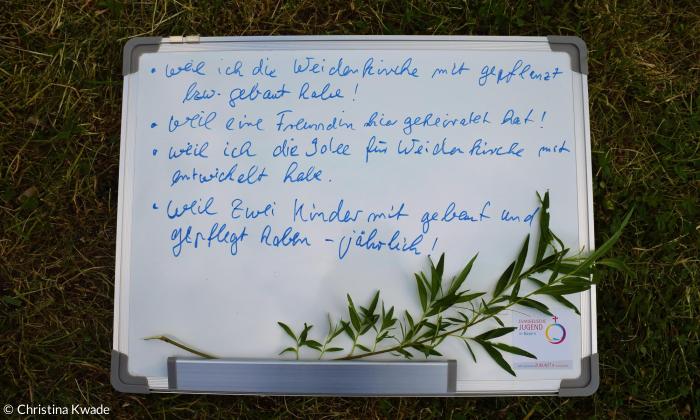 • weil ich die Weidenkirche mit gepflanzt
bzw. gebaut habe!
• weil eine Freundin hier geheiratet hat!
• weil ich die Idee für Weidenkirche mit
entwickelt habe.
• Weil zwei Kinder mit gebaut und
gepflegt haben - jährlich!
EVANGELISCHE
JUGEND
in Bayern
© Christina Kwade